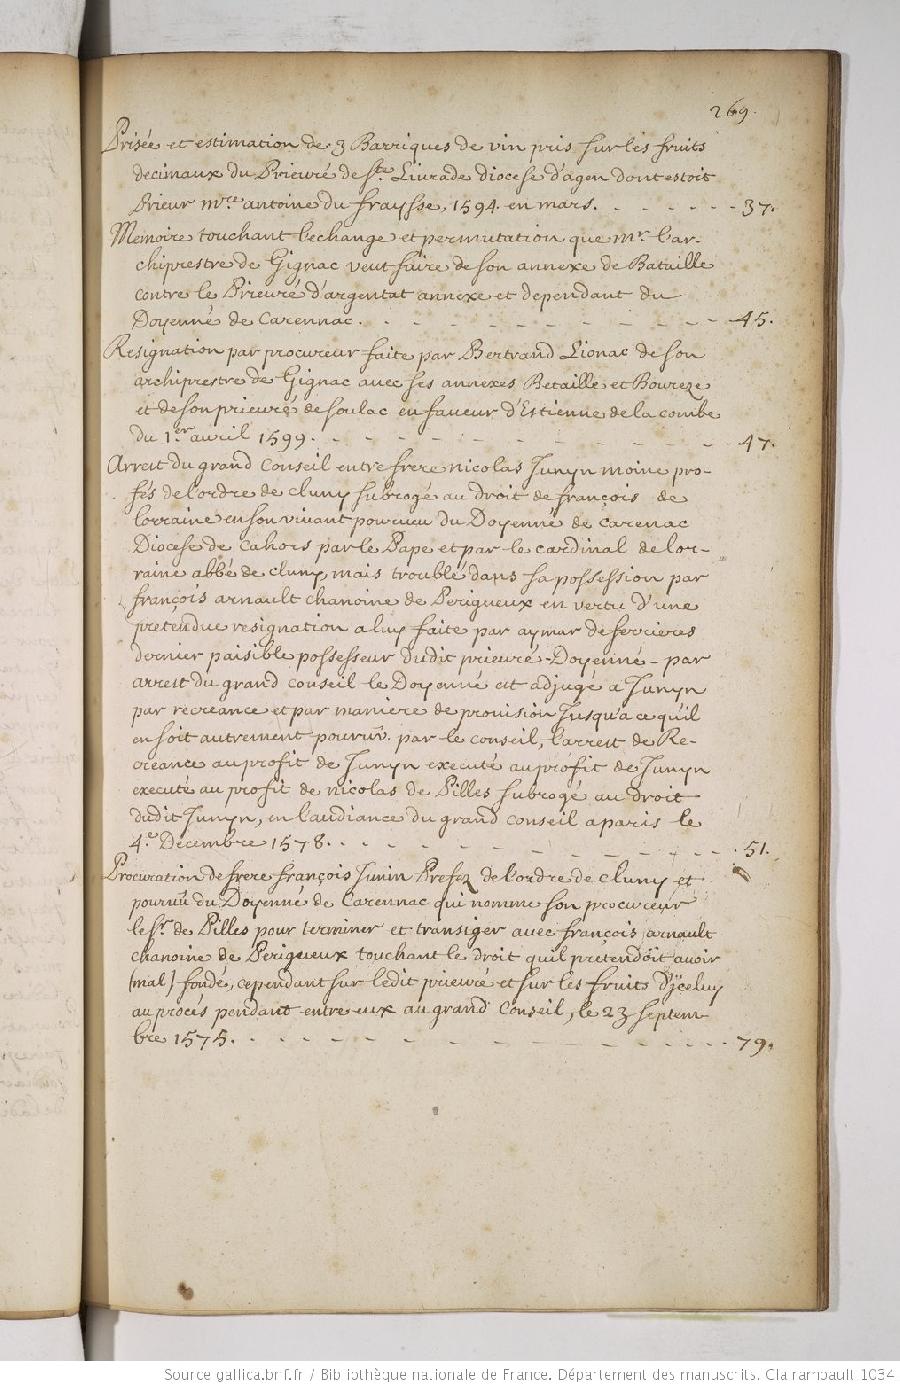 269.
Prisée et estimation de 3 Barriques de vin pris sur les fruits
decimaux du Prieuré de Ste. Livrade diocese d'agen dont estoit
Prieur mre antoine du fraysse, 1594. en mars. - - - - - - 37.
Memoire touchant l'echange et permutation que mr. l'ar-
chiprestre de Gignac veut faire de son annexe de Bataille
contre le Prieuré d'argentat annexe et dependant du
Doyenné de Carennac. - - - - - - - - - - - 45.
Resignation par procureur faite par Bertrand Lionac de son
archiprestre de Gignac avec ses annexes Betaille et Boureze
et de son prieuré de soulac en faveur d'Estienne de la combe
du 1.er avril 1599. - - - - - - - - - - - - 47.
Arrest du grand Conseil entre frere nicolas Junyn moine pro-
fés de l'ordre de cluny subrogé au droit de françois de
lorraine en son vivant pourvu du Doyenné de Carenac
Diocese de Cahors par le Pape et par le cardinal de lor-
raine abbé de cluny mais troublé dans sa possession par
françois arnault chanoine de Perigueux en vertu d'une
pretendue resignation a luy faite par aymar de ferrieres
dernier paisible possesseur dudit prieuré-Doyenné - par
arrest du grand conseil le Doyenné est adjugé a Junyn
par recreance et par maniere de provision Jusqu'a ce qu'il
en soit autrement pourvû. par le conseil, l'arrest de Re-
creance au profit de Junyn executé au profit de Junyn
executé au profit de nicolas de Pilles subrogé au droit
dudit Junyn, en l'audiance du grand conseil a paris le
4.e Decembre 1578. - - - - - - - - - - - 51.
Procuration de frere françois Junin Prefez de l'ordre de Cluny et
pourvû du Doyenné de Carennac qui nomme son procureur
le Sr. de Pilles pour terminer et transiger avec françois arnault
chanoine de Perigueux touchant le droit qu'il pretendoit avoir
(mal) fondé, cependant sur ledit prieuré et sur les fruits d'yceluy
au procés pendant entre eux au grand Conseil, le 23 septem-
bre 1575. - - - - - - - - - - - - - 79.
Source gallica.bnf.fr / Bibliothèque nationale de France. Département des manuscrits. Clairambault 1034